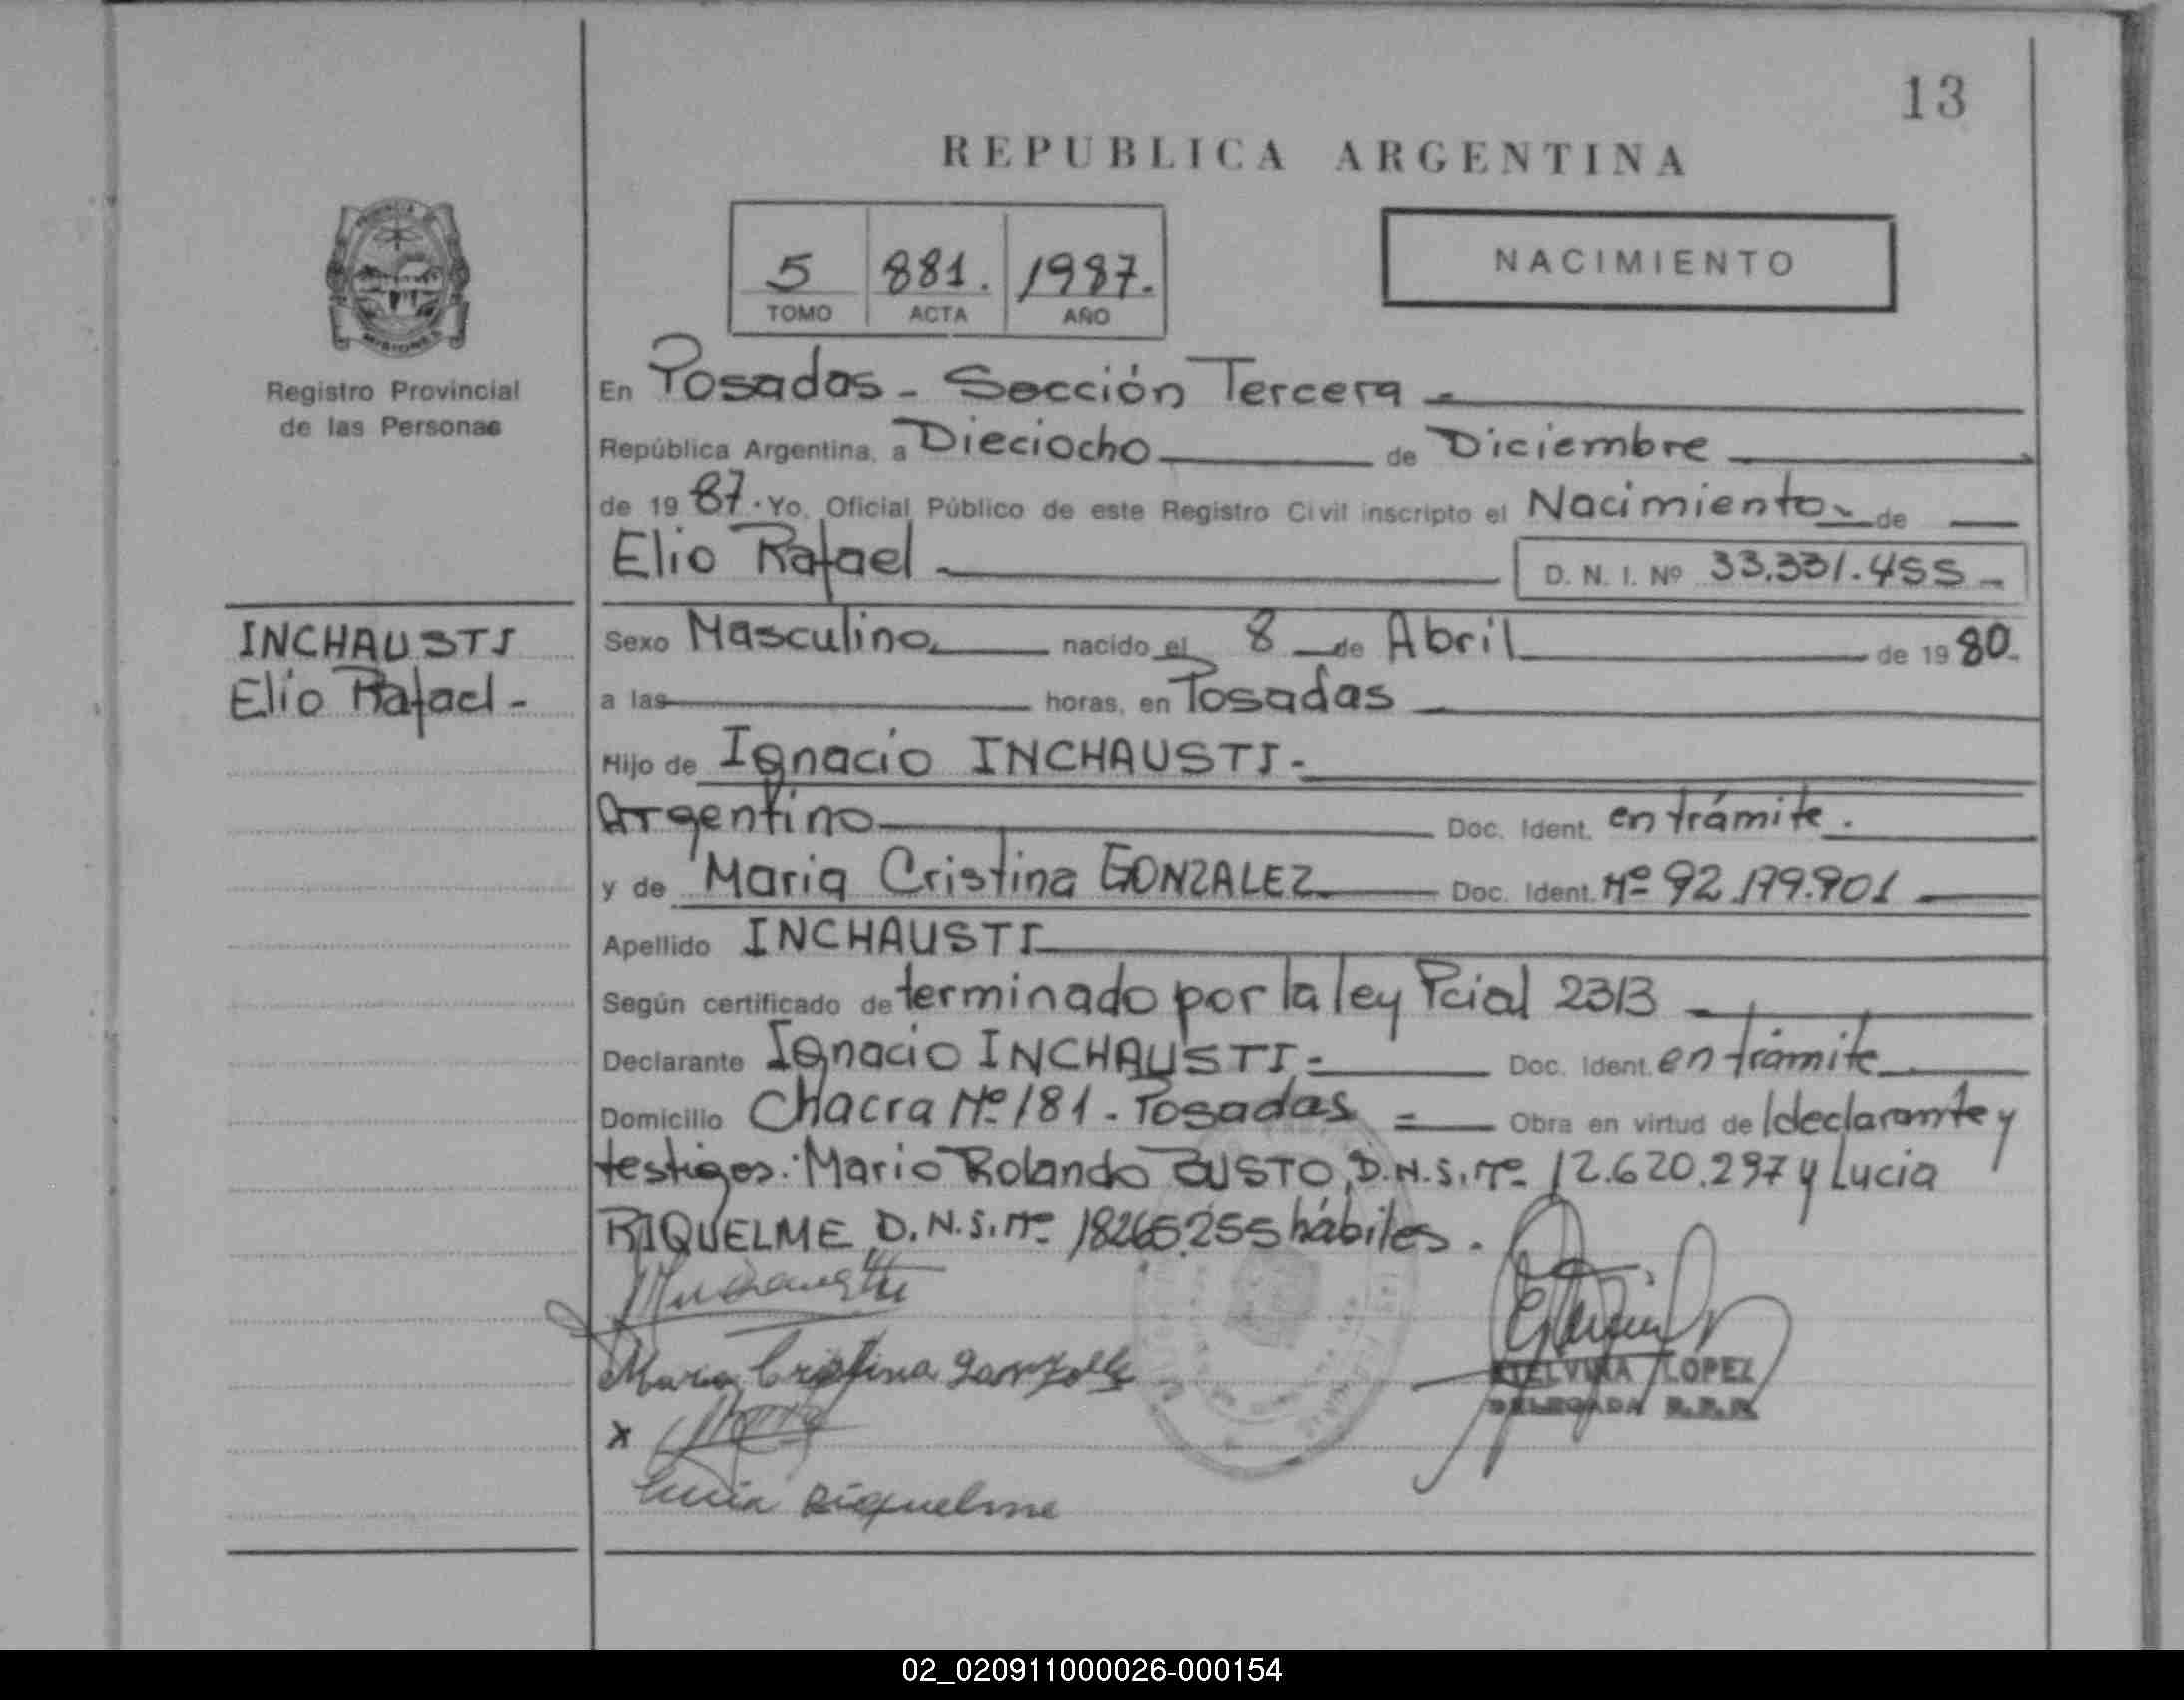 13
REPUBLICA ARGENTINA
5 881. 1987.
TOMO ACTA AÑO
NACIMIENTO
MISIONES
Registro Provincial
de las Personas
En Posadas - Sección Tercera
República Argentina, a Dieciocho de Diciembre
de 19 87. Yo, Oficial Público de este Registro Civil inscripto el Nacimiento de
Elio Rafael D. N. I. Nº 33.331.455
INCHAUSTI
Elio Rafael -
Sexo Masculino nacido el 8 de Abril de 19 80.
a las horas, en Posadas
Hijo de Ignacio INCHAUSTI.
Argentino Doc. Ident. en trámite.
y de Maria Cristina GONZALEZ Doc. Ident. Nº 92.179.901
Apellido INCHAUSTI
Según certificado de terminado por la ley Pcial 2313
Declarante Ignacio INCHAUSTI Doc. Ident. en trámite
Domicilio Chacra Nº 181 - Posadas = Obra en virtud de l declarante y
testigos: Mario Rolando BUSTO, D.N.I. Nº 12.620.297 y Lucia
RIQUELME D.N.I. Nº 18265.255 hábiles.
Maria Cristina
x
Lucia Riquelme
ETELVINA LOPEZ
DELEGADA R.P.P.
02_020911000026-000154